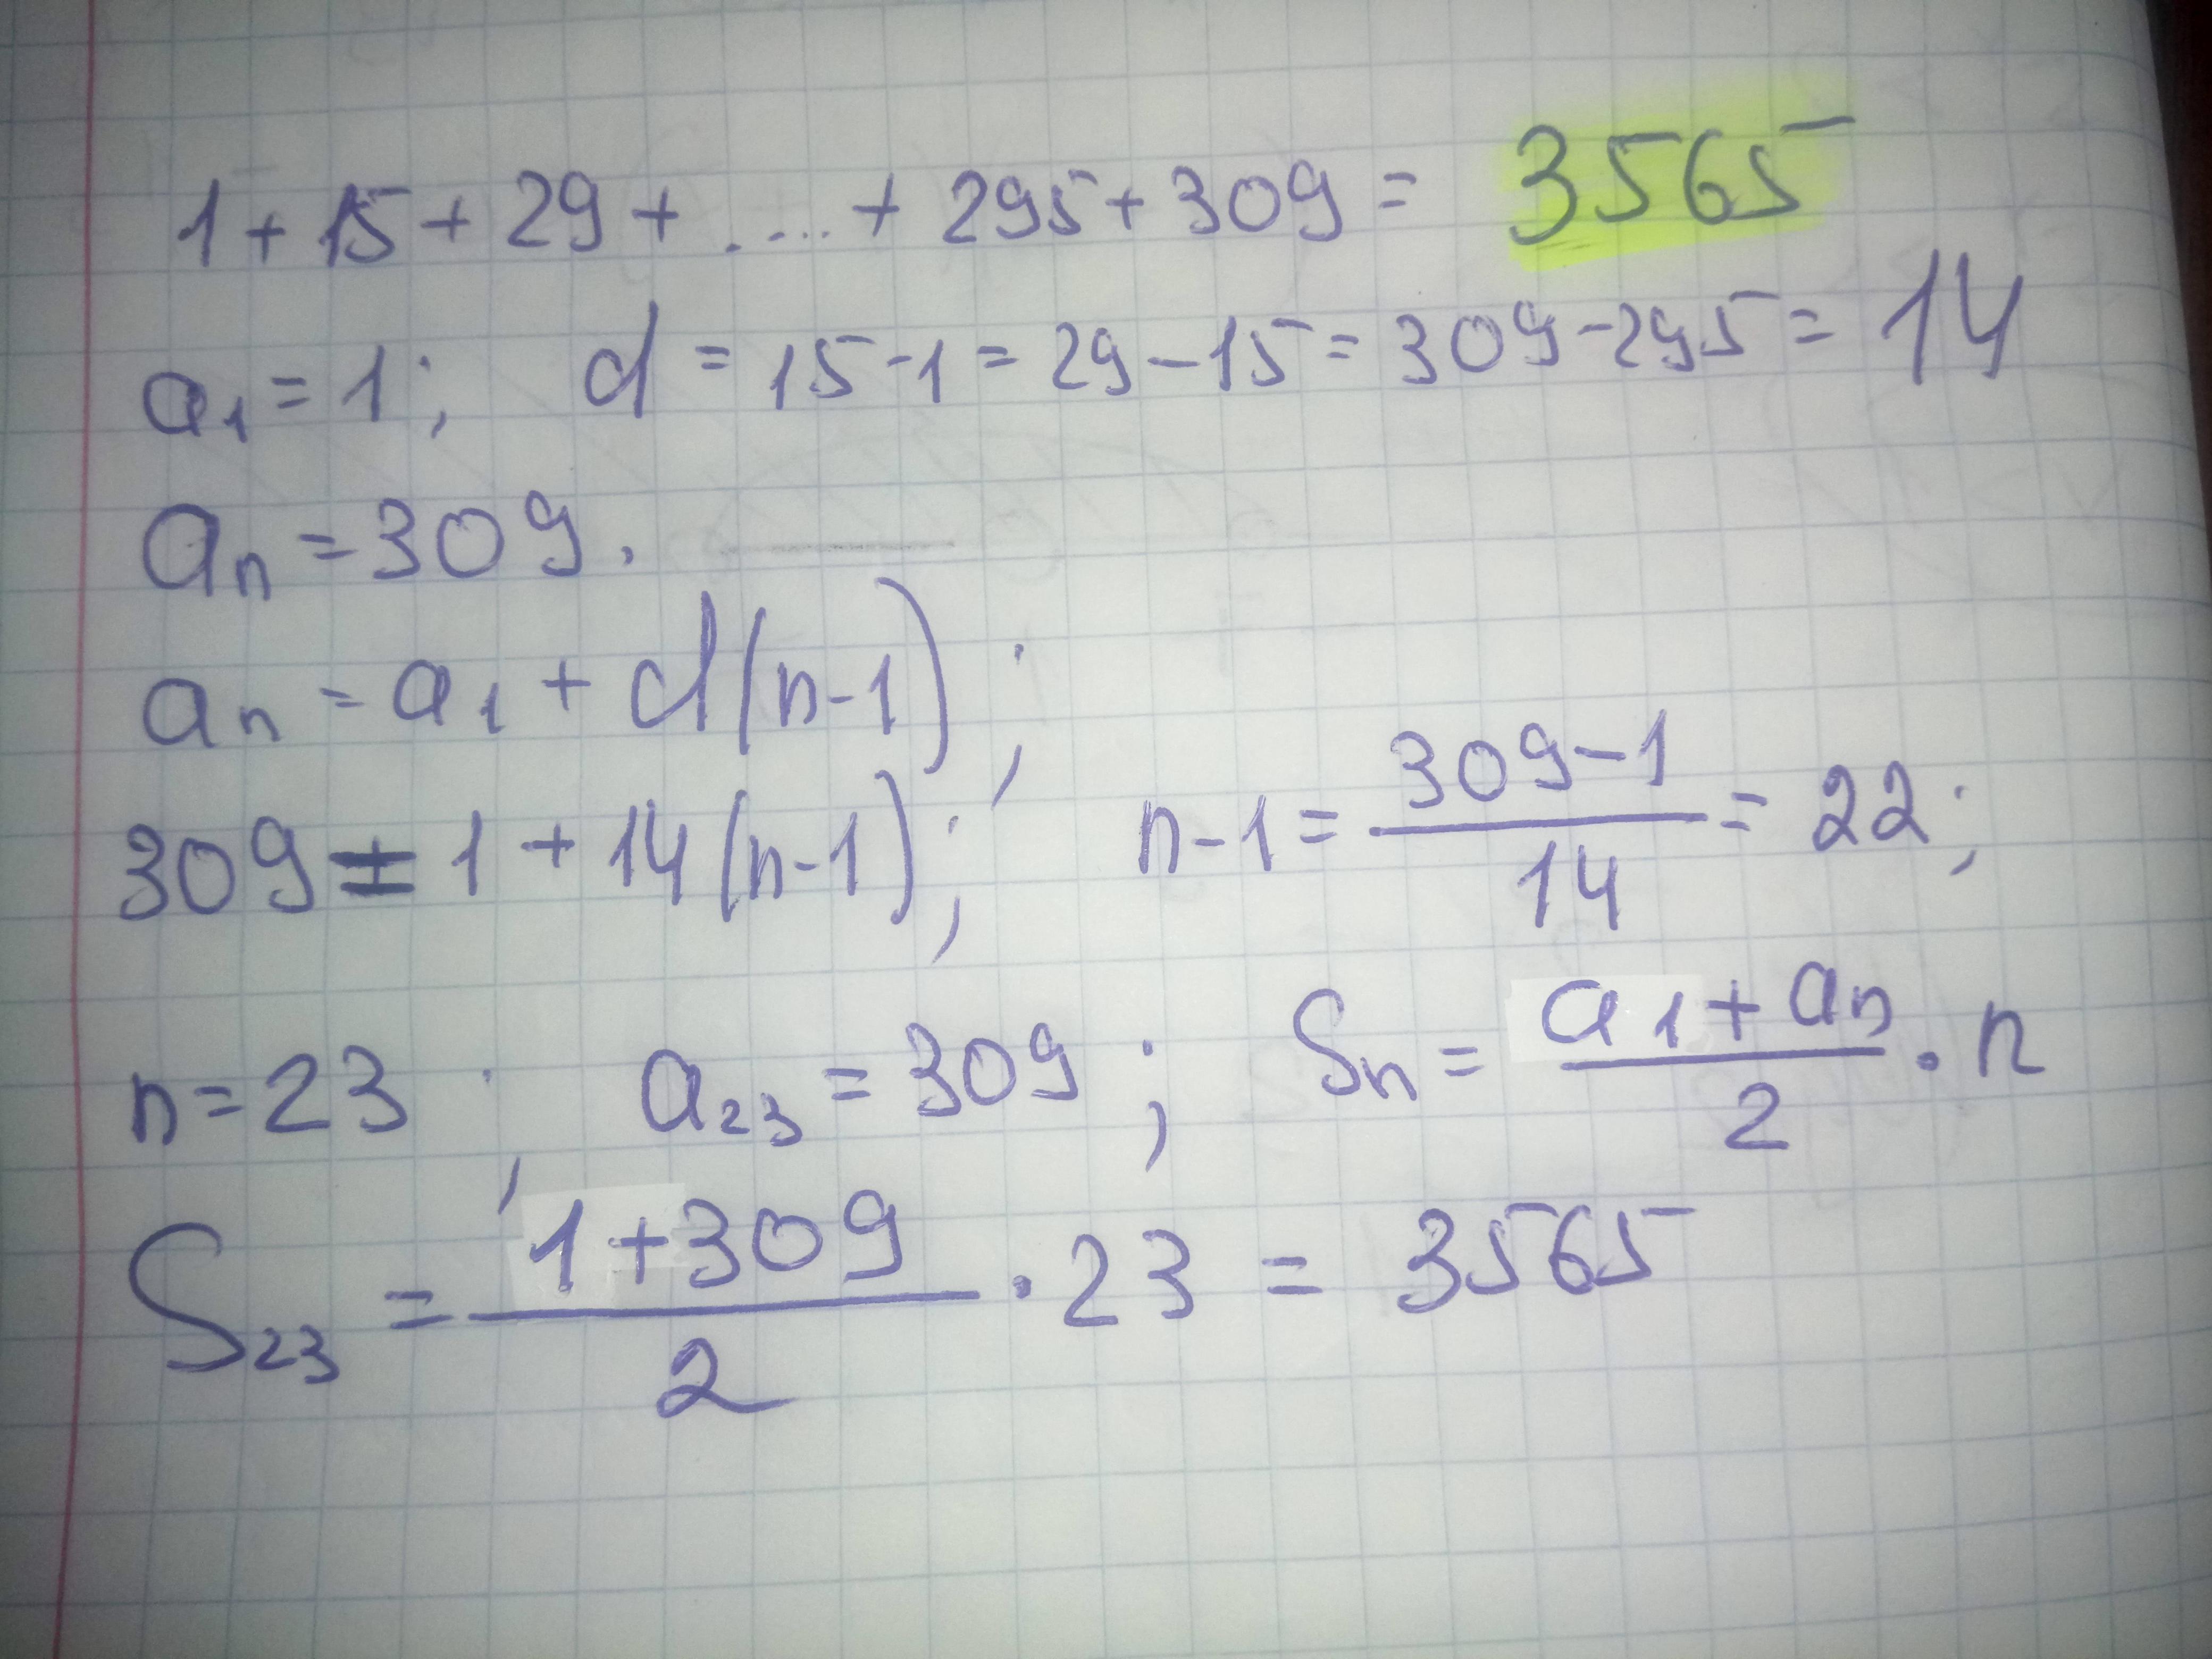 1 + 15 + 29 + ..... + 295 + 309 = 3565
a₁ = 1; d = 15 - 1 = 29 - 15 = 309 - 295 = 14
aₙ = 309.
aₙ = a₁ + d(n-1);
309 = 1 + 14(n-1); n-1 = (309-1)/14 = 22;
n = 23; a₂₃ = 309; Sₙ = (a₁ + aₙ)/2 · n
S₂₃ = (1 + 309)/2 · 23 = 3565